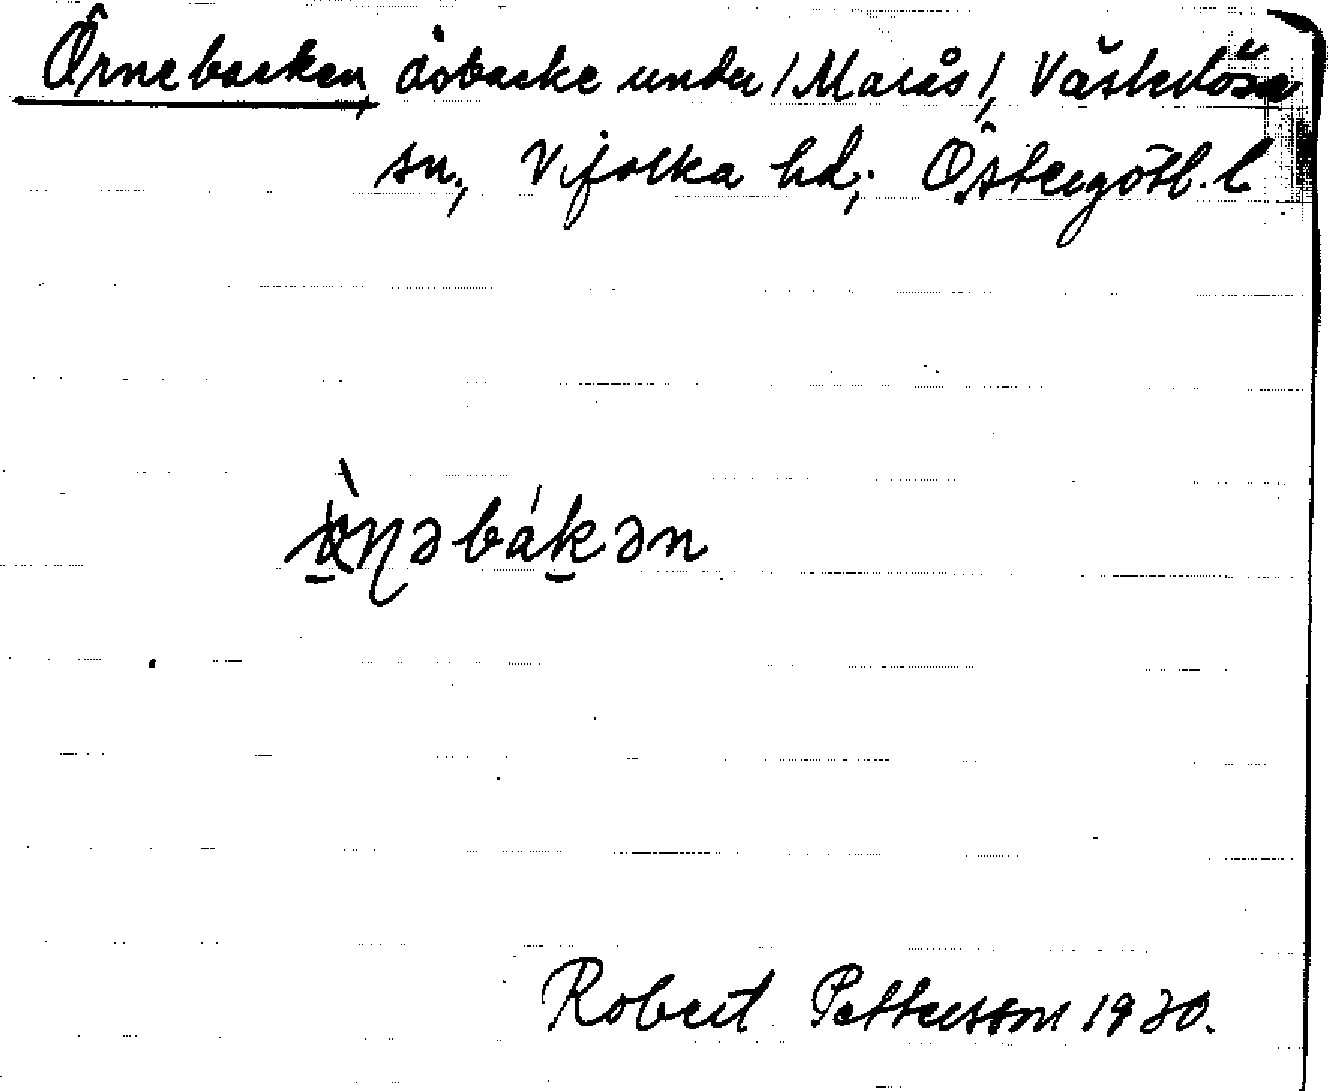 Örnebacken, åsbacke under /Marås/, Västerlösa
sn., Vifolka hd; Östergötl. l.
bákən
Robert Pettersson 1930.